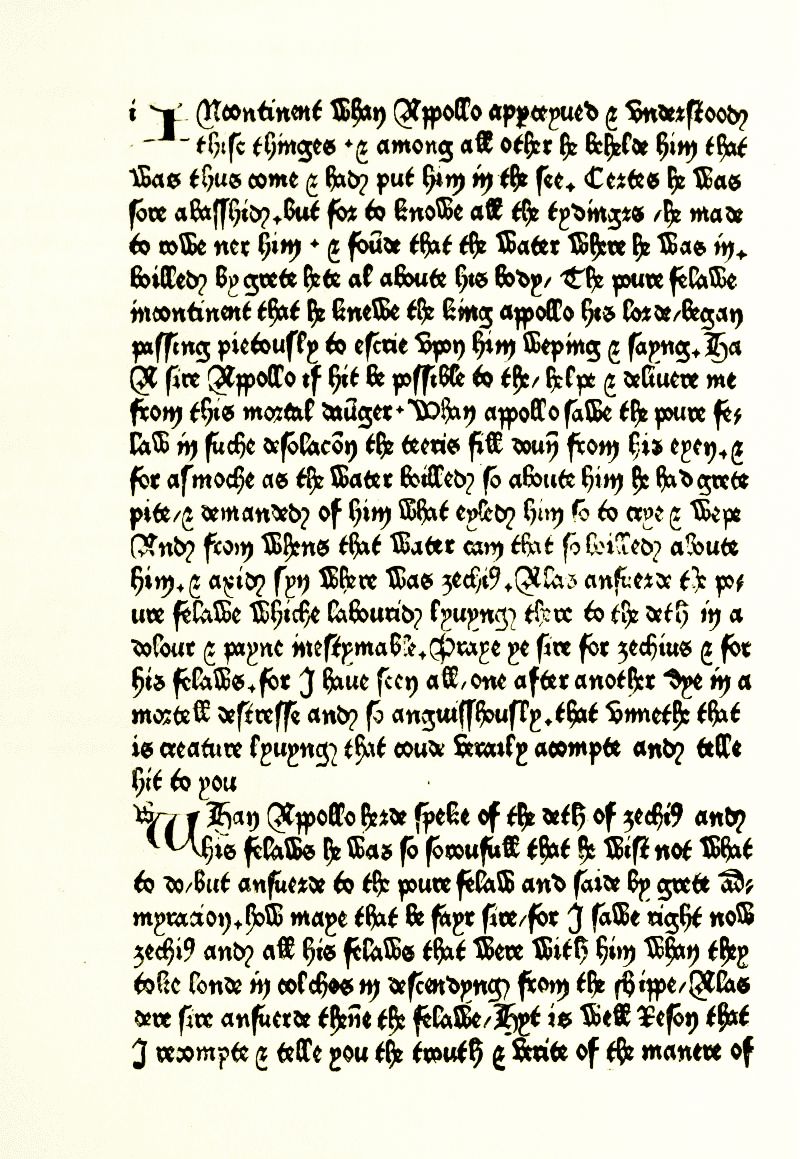 i INcontinent whan Appollo apperceyued & vnderstood
thise thinges · & among all other he behelde him that
was thus come & had put him in the see. Certes he was
sore abasshid. but for to knowe all the tydingis / he made
to rowe ner him · & foūde that the water where he was in.
boilled by grete hete al aboute his body/ The poure felawe
incontinent that he knewe the king appollo his lorde/began
passing pietously to escrie vpon him weping & sayng. Ha
A sire Appollo if hit be possible to the/ helpe & deliuere me
from this mortal daūger · Whan appollo sawe the poure fe-
law in suche desolacōn the teeris fill doun from his eyen. &
for asmoche as the water boilled so aboute him he had grete
pite/& demanded of him what eyled him so to crye & wepe
And from whens that water cam that so boilled aboute
him. & axid syn where was zechiꝰ. Alas ansuerde the po-
ure felawe whiche labourid lyuyng there to the deth in a
dolour & payne inestymable. Praye ye sire for zechius & for
his felaws. for I have seen all/one after another dye in a
mortell destresse and so anguisshously. that vnnethe that
is creature lyuyng that coude veraily acompte and telle
hit to you
w WHan Appollo herde speke of the deth of zechiꝰ and
his felaws he was so sorowfull that he wist not what
to do/but ansuerde to the poure felaw and saide by grete ad-
myracion. how maye that be fayr sire/for I sawe right now
zechiꝰ and all his felaws that were with him whan they
toke londe in colchos in descendyng from the shippe/Alas
dere sire ansuerde thēne the felawe/Hyt is well Reson that
I recompte & telle you the trouth & verite of the manere of